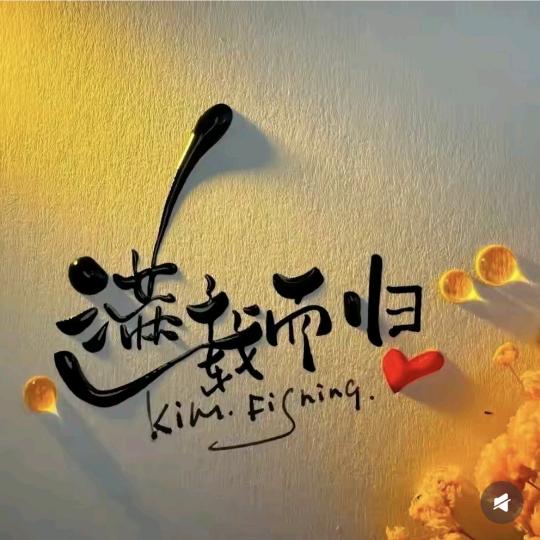 满载而归
Kim. Fishing.